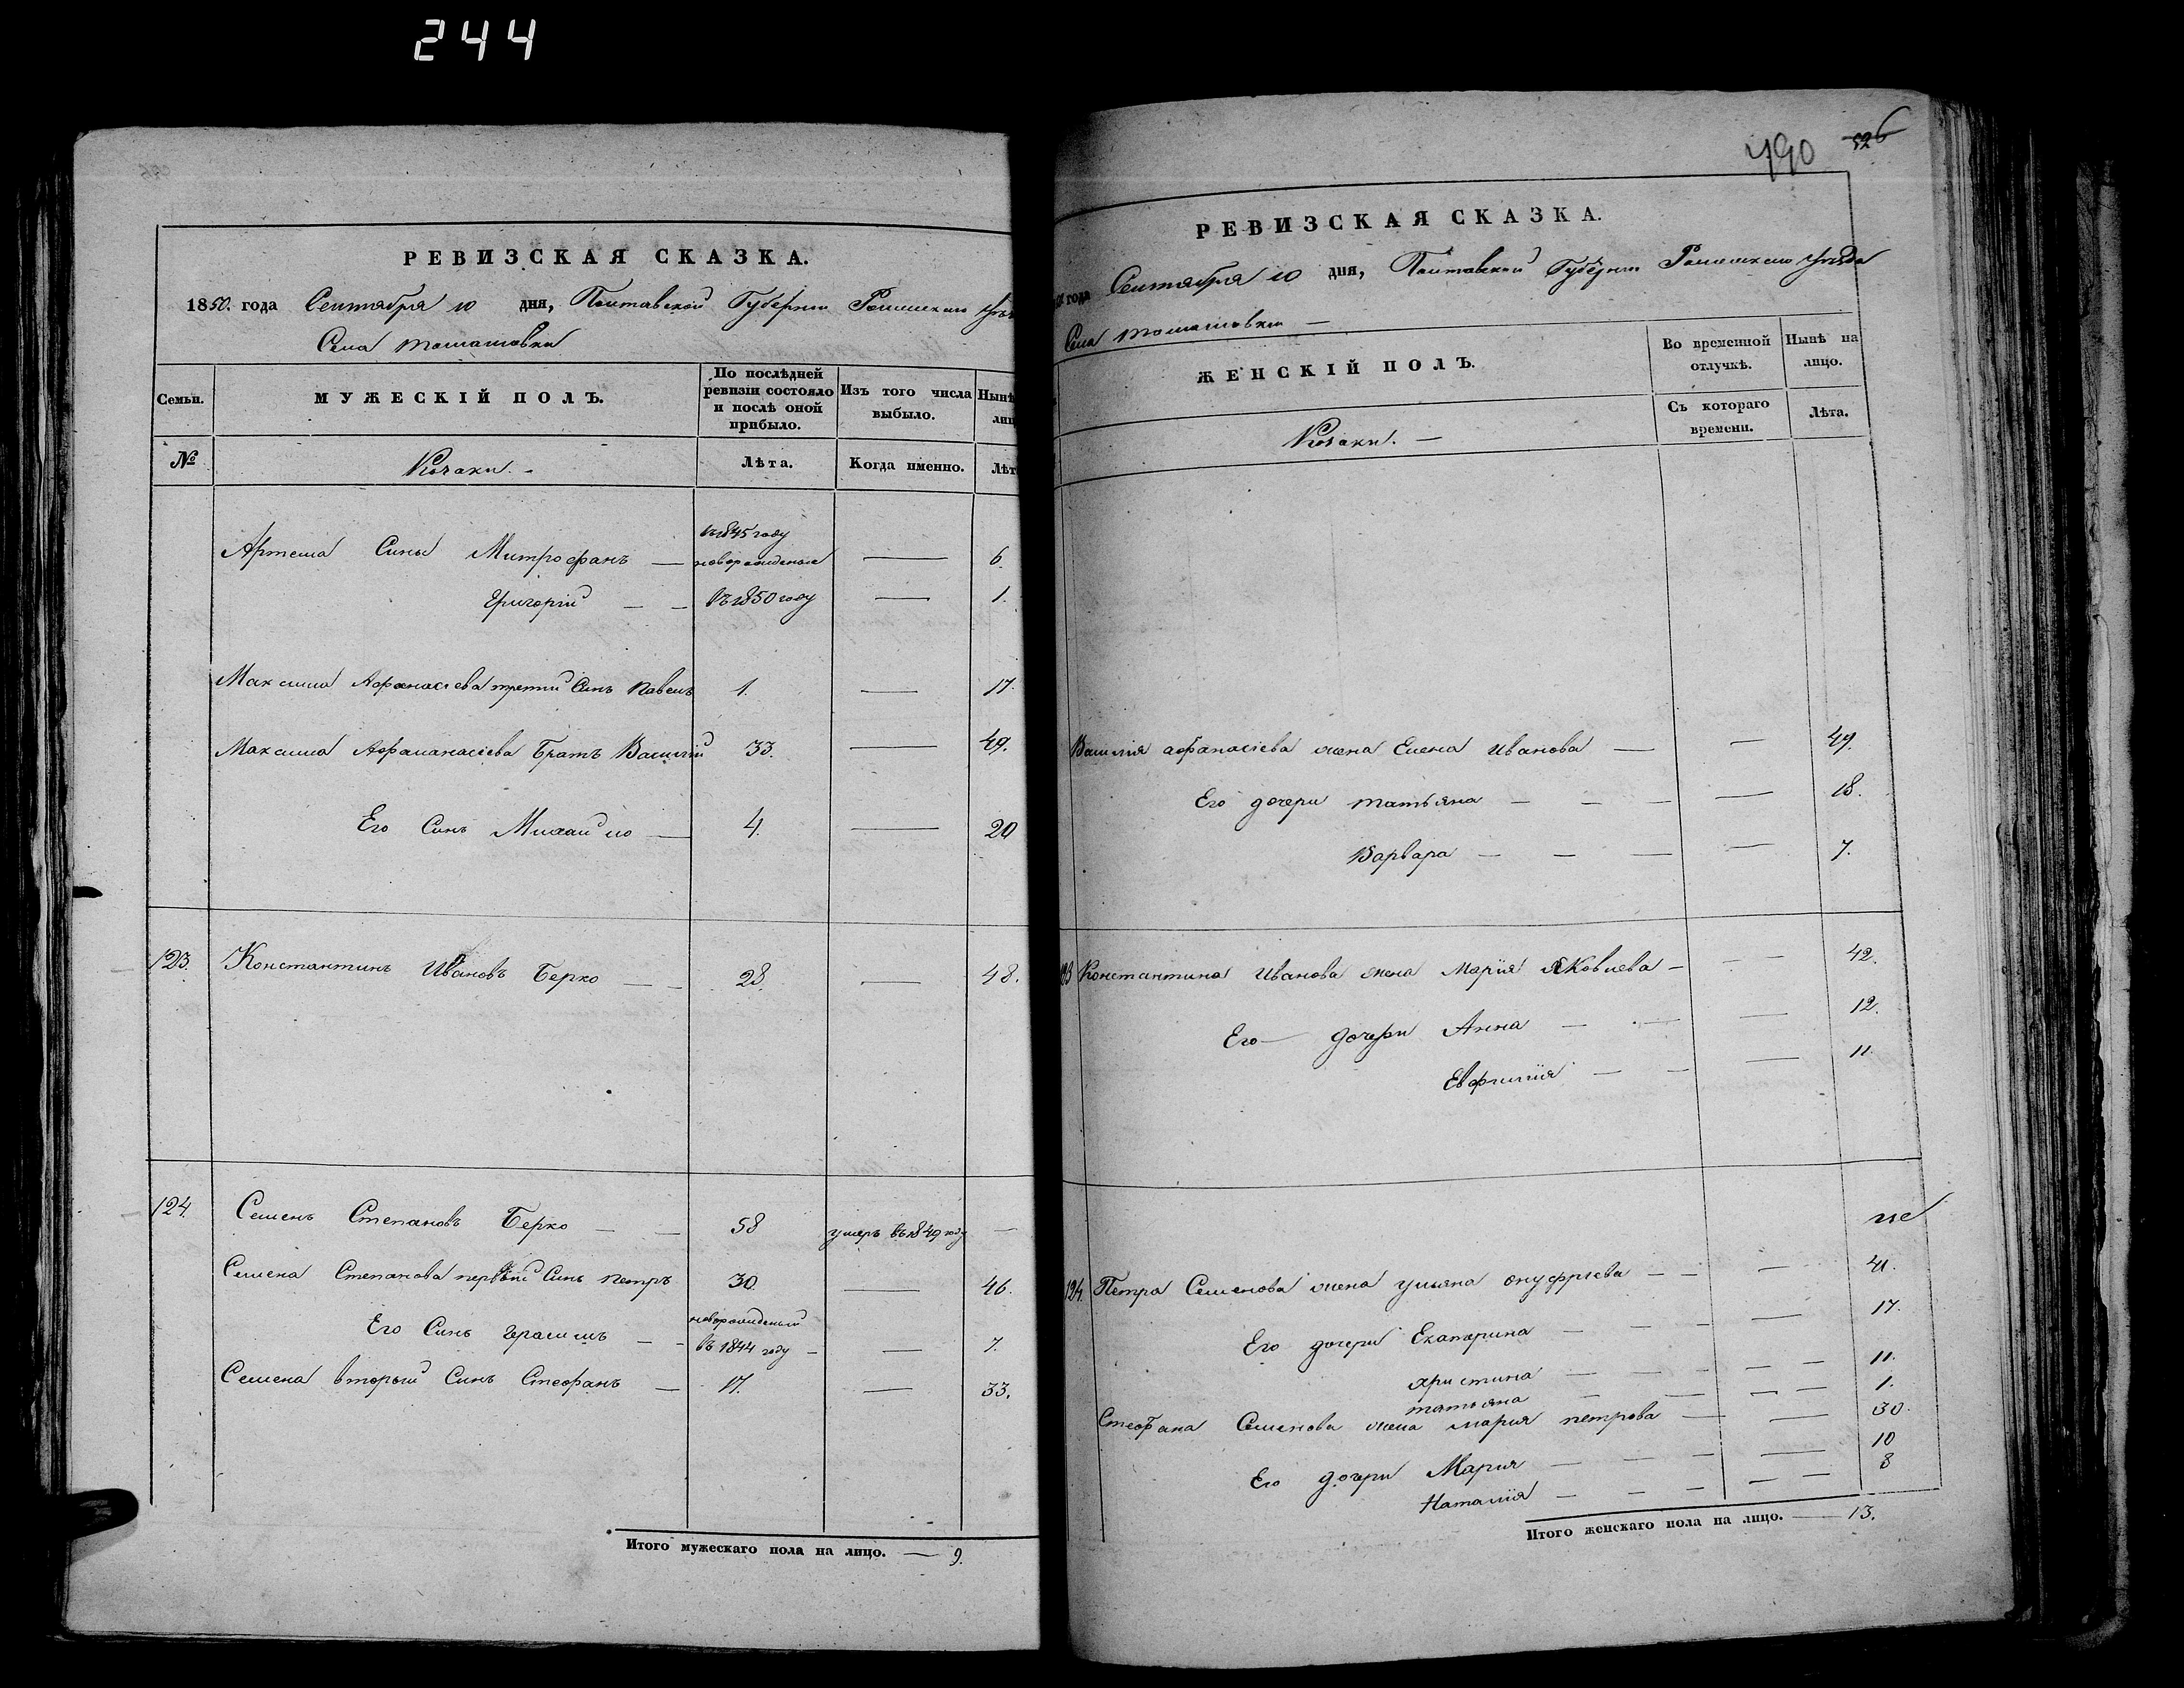 244
РЕВИЗСКАЯ СКАЗКА.
1850. года Сентября 10 дня, Полтавской Губернии Роменскаго
Села Томашовки
Семьи.
МУЖЕСКІЙ ПОЛЪ.
По послѣдней ревизіи состояло и послѣ оной прибыло.
Изъ того числа выбыло.
Нынѣ
№
Козаки. -
Лѣта.
Когда именно.
Лѣт
въ 1845 году
Артема Сины Митрофанъ — новорожденые — 6.
Григорій — — въ 1850 году — 1.
Максима Афанасіева третій Синъ Павелъ 1. — 17.
Максима Афаманасіева Братъ Василій 33. — 49.
Его Синъ Михайло — 4. — 20
123. Константинъ Ивановъ Берко — — 28. — 48.
124. Семенъ Степановъ Берко — — 58 умеръ въ 1849 году —
Семена Степанова первый Синъ Петръ 30. — 46.
новорожденый
Его Синъ Герасимъ — - въ 1844 году - — 7.
Семена вторый Синъ Стефанъ — 17. — 33.
Итого мужескаго пола на лицо. — 9.
490 526
РЕВИЗСКАЯ СКАЗКА.
года Сентября 10 дня, Полтавской Губернии Роменскаго уѣзда
Села Томашовки —
ЖЕНСКІЙ ПОЛЪ.
Во временной отлучкѣ.
Нынѣ на лицо.
Козаки. —
Съ котораго времени.
Лѣта.
Василія афанасіева жена Елена Иванова — — 49.
Его дочери татьяна — — — — 18.
Варвара — — — — 7.
123 Константина Иванова жена Марія Яковлева — - — 42.
Его — дочери Анна — - — — 12.
Евфимія — — — 11.
124. Петра Семенова жена ульяна онуфріева — — — 41.
Его дочери Екатерина — — — — 17.
христина — — — — — 11.
татьяна — — — — 1.
Стефана Семенова жена мария петрова — — 30.
Его дочери Мария — — — — 10
Наталія — — — — — 8
Итого женскаго пола на лицо. — 13.